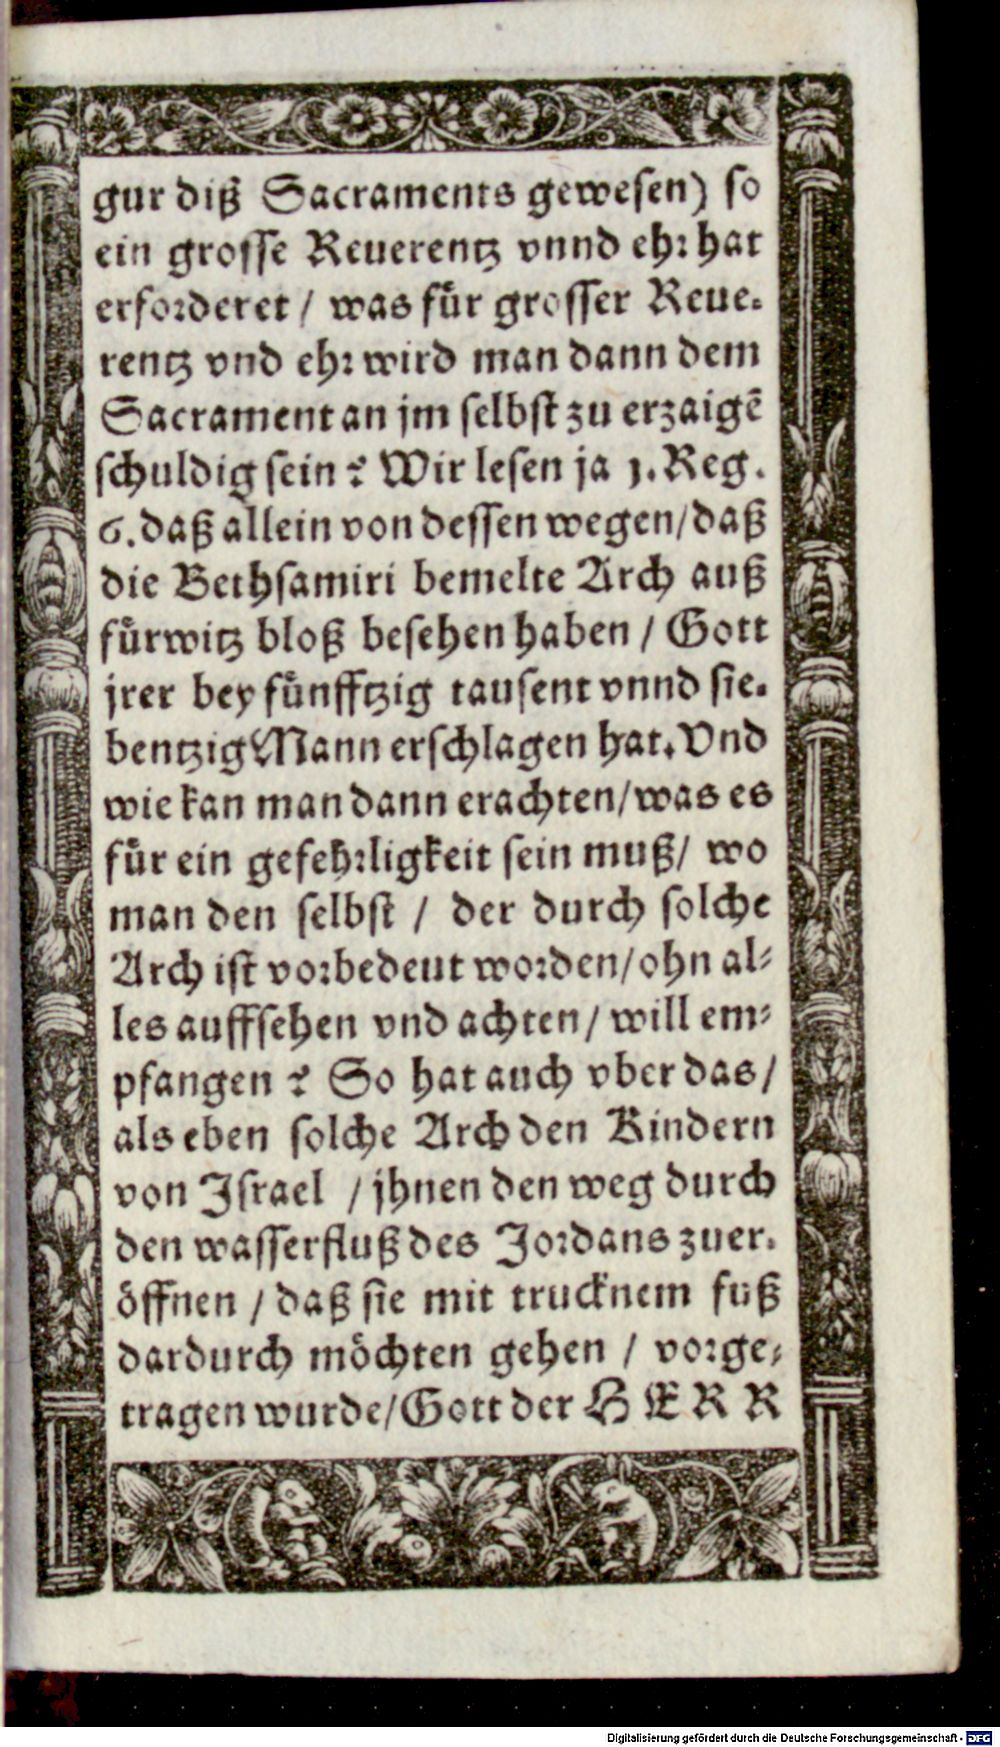 gur diß Sacraments gewesen) so
ein grosse Reuerentz vnnd ehr hat
erforderet / was für grosser Reue-
rentz vnd ehr wird man dann dem
Sacrament an jm selbst zu erzaigē
schuldig sein? Wir lesen ja 1. Reg.
6. daß allein von dessen wegen/ daß
die Bethsamiri bemelte Arch auß
fürwitz bloß besehen haben / Gott
jrer bey fünfftzig tausent vnnd sie-
bentzig Mann erschlagen hat. Vnd
wie kan man dann erachten/ was es
für ein gefehrligkeit sein muß/ wo
man den selbst / der durch solche
Arch ist vorbedeut worden/ ohn al-
les auffsehen vnd achten/ will em-
pfangen? So hat auch vber das/
als eben solche Arch den Kindern
von Israel / jhnen den weg durch
den wasserfluß des Jordans zuer-
öffnen / daß sie mit trucknem fuß
dardurch möchten gehen / vorge-
tragen wurde/ Gott der HERR
Digitalisierung gefördert durch die Deutsche Forschungsgemeinschaft - DFG